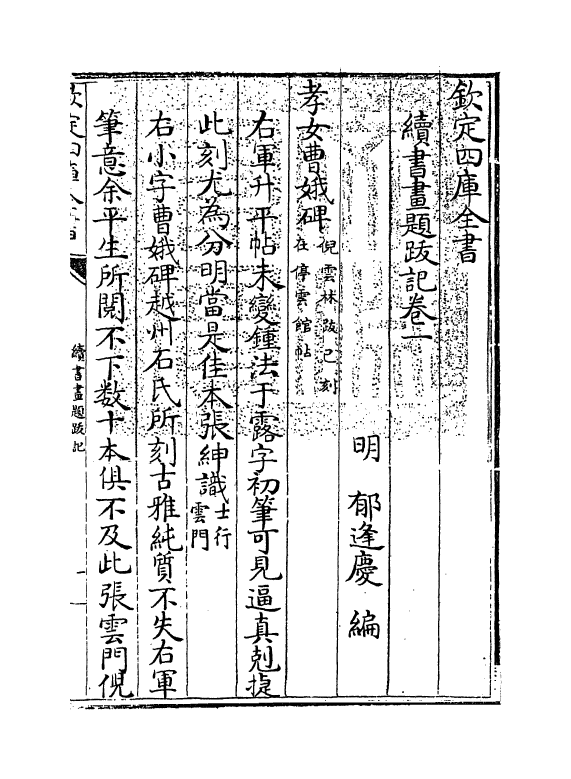 欽定四庫全書
續書畫題跋記卷一
明 郁逢慶 編
孝女曹娥碑倪雲林跋已刻在停雲館帖
右軍升平帖未變鍾法于露字初筆可見逼真剋捷
此刻尤為分明當是佳本張紳識士行雲門
右小字曹娥碑越州石氏所刻古雅純質不失右軍
筆意余平生所閱不下数十本俱不及此張雲門倪
欽定四庫全書
續書畫題跋記
一